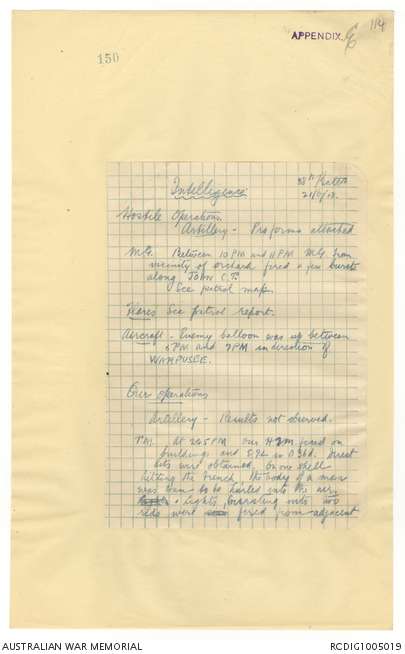 APPENDIX E
114
150
Intelligence
38th Battn
21/6/18.
Hostile Operations.
Artillery - Proforma attached
M.G. Between 10 PM and 11 PM M.G. from
vicinity of orchard fired a few bursts
along JOHN C.T.
See patrol map.
Flares See patrol report.
Aircraft - Enemy balloon was up between
6 PM and 7 PM in direction of
WAMPUSEE.
Our operations
Artillery - Results not observed.
T.M. At 245 PM our
fired on
buildings and
in
Direct
hits were obtained. On one shell
hitting the trench, the body of a man
was seen to be hurled into the air,
lights bursting into two
reds were fired from adjacent
AUSTRALIAN WAR MEMORIAL
RCDIG1005019